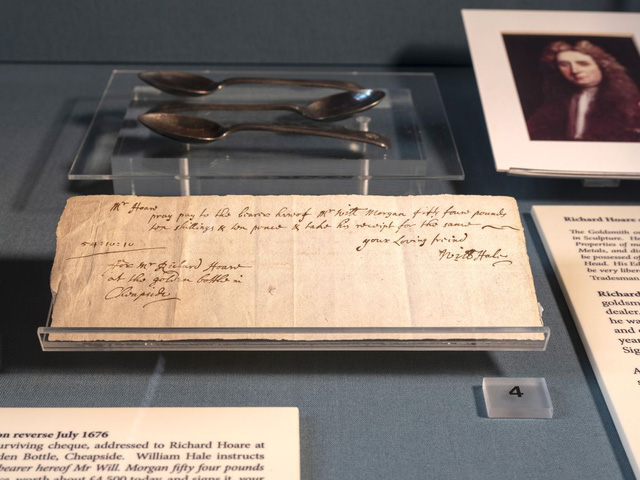 Mr Hoare
pray pay to the bearer hereof Mr Will Morgan fifty foure pounds
ten shillings & ten pence & take his receipt for the same
your Loving friend
Will Hale
54:10:10
For Mr Richard Hoare
at the golden bottle in
Cheapside
4
on reverse July 1676
surviving cheque, addressed to Richard Hoare at
den Bottle, Cheapside. William Hale instructs
bearer hereof Mr Will. Morgan fifty four pounds
worth about £4,500 today, and signs it, your
Richard Hoare
The Goldsmith
in Sculpture. He
Properties of
Metals, and
be possessed of
Head. His Ed
be very liberal
Tradesman
Richard
goldsm
dealer.
he wa
and
year
Sig